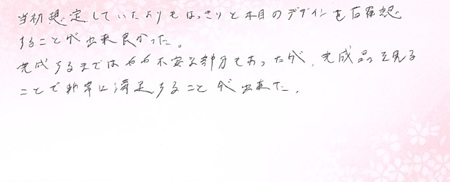 当初想定していたよりもはっきりと木目のデザインを右確認
することが出来良かった。
完成するまではやや不安な部分もあったが、完成品を見る
ことで非常に満足することが出来た。